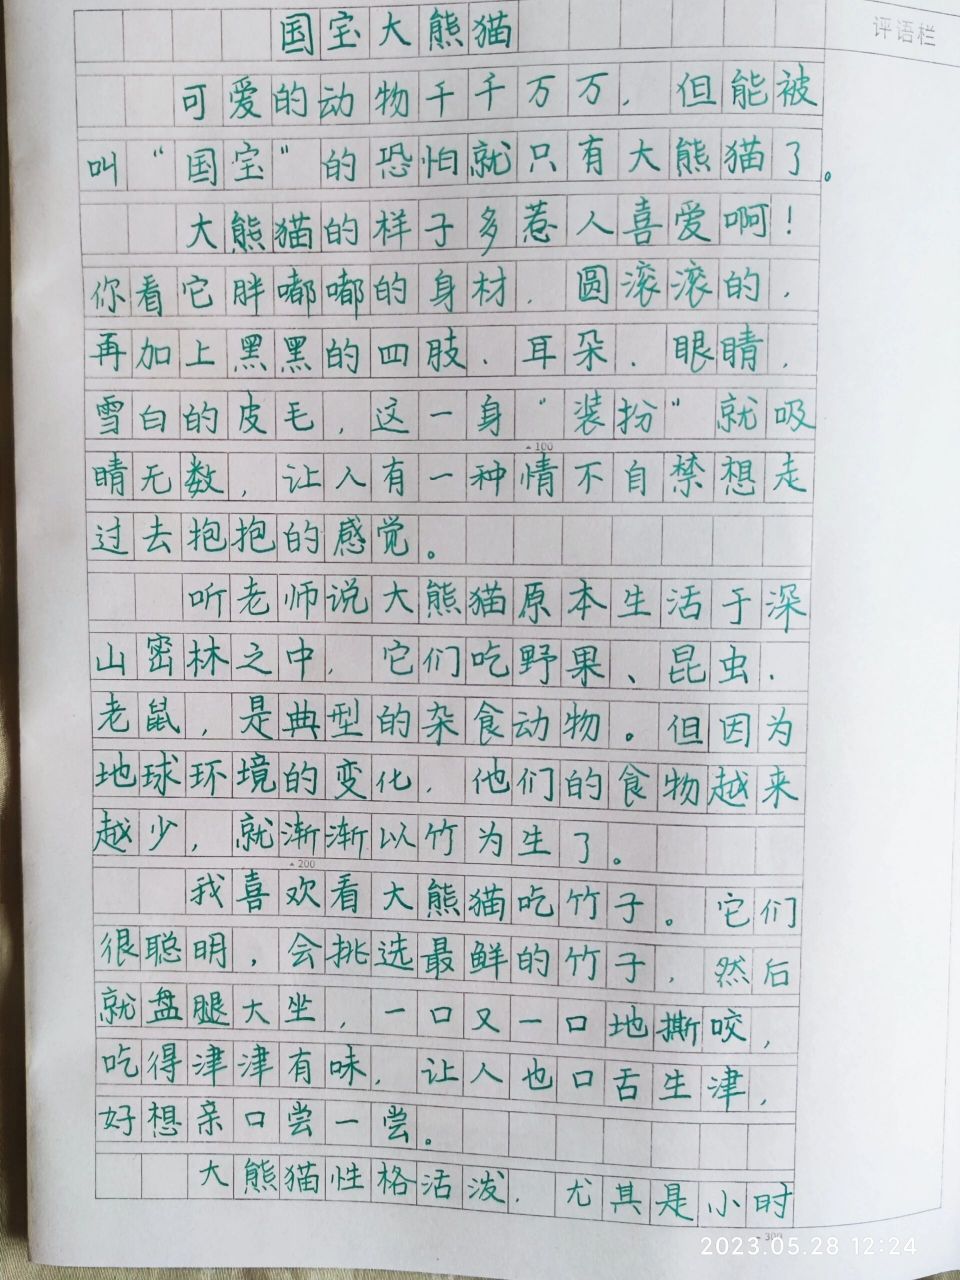 国宝大熊猫
评语栏
可爱的动物千千万万，但能被
叫“国宝”的恐怕就只有大熊猫了。
大熊猫的样子多惹人喜爱啊！
你看它胖嘟嘟的身材，圆滚滚的，
再加上黑黑的四肢、耳朵、眼睛，
雪白的皮毛，这一身“装扮”就吸
睛无数，让人有一种情不自禁想走
过去抱抱的感觉。
听老师说大熊猫原本生活于深
山密林之中，它们吃野果、昆虫、
老鼠，是典型的杂食动物。但因为
地球环境的变化，他们的食物越来
越少，就渐渐以竹为生了。
我喜欢看大熊猫吃竹子。它们
很聪明，会挑选最鲜的竹子，然后
就盘腿大坐，一口又一口地撕咬，
吃得津津有味，让人也口舌生津，
好想亲口尝一尝。
大熊猫性格活泼，尤其是小时
100
200
300
2023.05.28 12:24